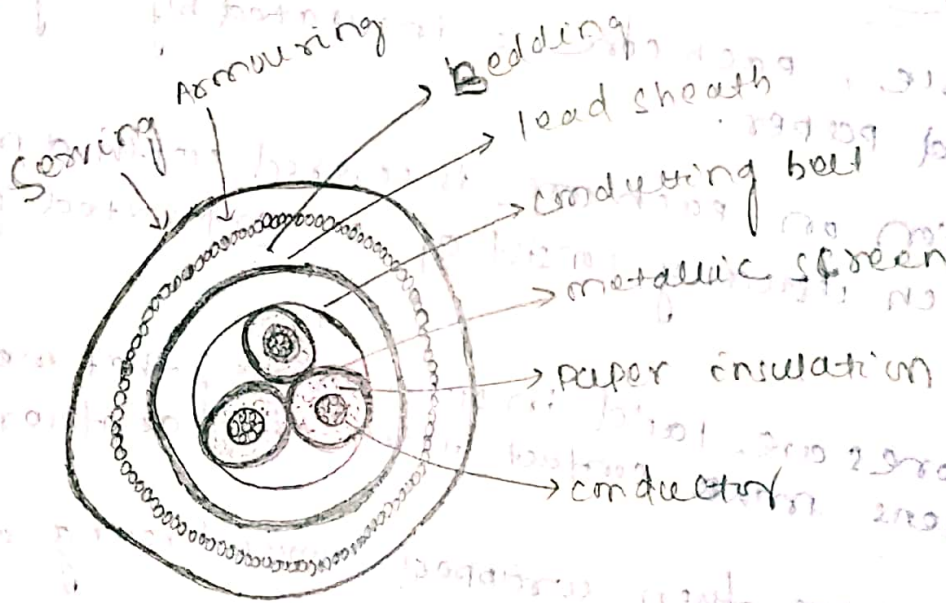 Serving
Armouring
Bedding
lead sheath
conducting belt
metallic screen
paper insulation
conductor